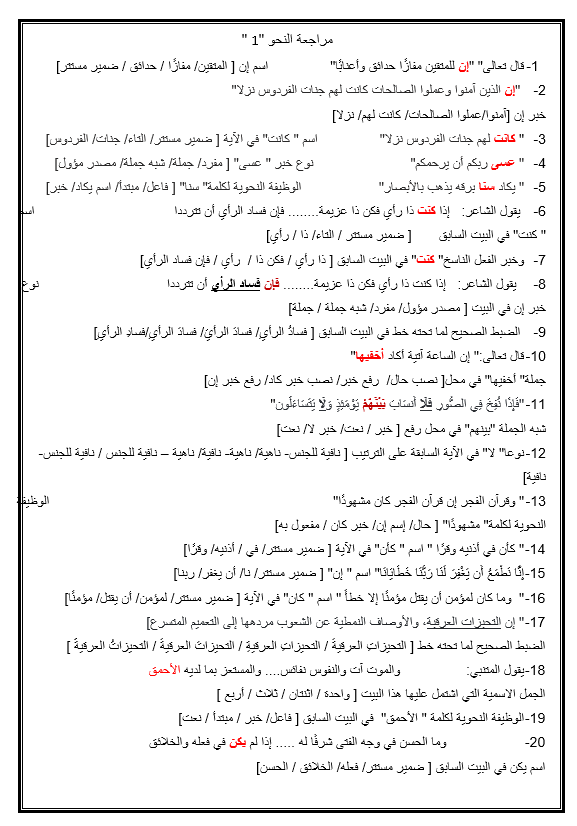 مراجعة النحو "1 "
1- قال تعالى" "إن للمتقين مفازًا حدائق وأعنابًا" اسم إن [ المتقين/ مفازًا / حدائق / ضمير مستتر]
2- "إن الذين آمنوا وعملوا الصالحات كانت لهم جنات الفردوس نزلا"
خبر إن [آمنوا/عملوا الصالحات/ كانت لهم/ نزلا]
3- " كانت لهم جنات الفردوس نزلا" اسم " كانت" في الآية [ ضمير مستتر/ التاء/ جنات/ الفردوس]
4- " عسى ربكم أن يرحمكم" نوع خبر " عسى" [ مفرد/ جملة/ شبه جملة/ مصدر مؤول]
5- " يكاد سنا برقه يذهب بالأبصار" الوظيفة النحوية لكلمة" سنا" [ فاعل/ مبتدأ/ اسم يكاد/ خبر]
6- يقول الشاعر: إذا كنت ذا رأي فكن ذا عزيمة........ فإن فساد الرأي أن تترددا اسم
" كنت" في البيت السابق [ ضمير مستتر / التاء/ ذا / رأي]
7- وخبر الفعل الناسخ" كنت" في البيت السابق [ ذا رأي / فكن ذا / رأي / فإن فساد الرأي]
8- يقول الشاعر: إذا كنت ذا رأي فكن ذا عزيمة........ فإن فساد الرأي أن تترددا نوع
خبر إن في البيت [ مصدر مؤول/ مفرد/ شبه جملة / جملة]
9- الضبط الصحيح لما تحته خط في البيت السابق [ فسادُ الرأيِ/ فسادَ الرأيَ/ فسادَ الرأيِ/فسادِ الرأيِ]
10- قال تعالى:" إن الساعة آتية أكاد أخفيها"
جملة" أخفيها" في محل[ نصب حال/ رفع خبر/ نصب خبر كاد/ رفع خبر إن]
11- "فَإِذَا نُفِخَ فِي الصُّورِ فَلَا أَنسَابَ بَيْنَهُمْ يَوْمَئِذٍ وَلَا يَتَسَاءَلُونَ"
شبه الجملة "بينهم" في محل رفع [ خبر / نعت/ خبر لا/ نعت]
12- نوعا" لا" في الآية السابقة على الترتيب [ نافية للجنس- ناهية/ ناهية- نافية/ ناهية – نافية للجنس / نافية للجنس-
نافية]
13- " وقرآن الفجر إن قرآن الفجر كان مشهودًا" الوظيفة
النحوية لكلمة" مشهودًا" [ حال/ إسم إن/ خبر كان / مفعول به]
14- " كأن في أذنيه وقرًا " اسم " كأن" في الآية [ ضمير مستتر/ في / أذنيه/ وقرًا]
15- إِنَّا نَطْمَعُ أَن يَغْفِرَ لَنَا رَبُّنَا خَطَايَانَا" اسم " إن" [ ضمير مستتر/ نا/ أن يغفر/ ربنا]
16- " وما كان لمؤمن أن يقتل مؤمنًا إلا خطأً " اسم " كان" في الآية [ ضمير مستتر/ لمؤمن/ أن يقتل/ مؤمنًا]
17- " إن التحيزات العرقية، والأوصاف النمطية عن الشعوب مردها إلى التعميم المتسرع]
الضبط الصحيح لما تحته خط [ التحيزاتِ العرقيةَ / التحيزاتِ العرقيةِ / التحيزاتَ العرقيةَ / التحيزاتُ العرقيةُ ]
18- يقول المتنبي: والموت آت والنفوس نفائس.... والمستعز بما لديه الأحمق
الجمل الاسمية التي اشتمل عليها هذا البيت [ واحدة / اثنتان / ثلاث / أربع ]
19- الوظيفة النحوية لكلمة " الأحمق" في البيت السابق [ فاعل/ خبر / مبتدأ / نعت]
20- وما الحسن في وجه الفتى شرفًا له ..... إذا لم يكن في فعله والخلائق
اسم يكن في البيت السابق [ ضمير مستتر/ فعله/ الخلائق / الحسن]